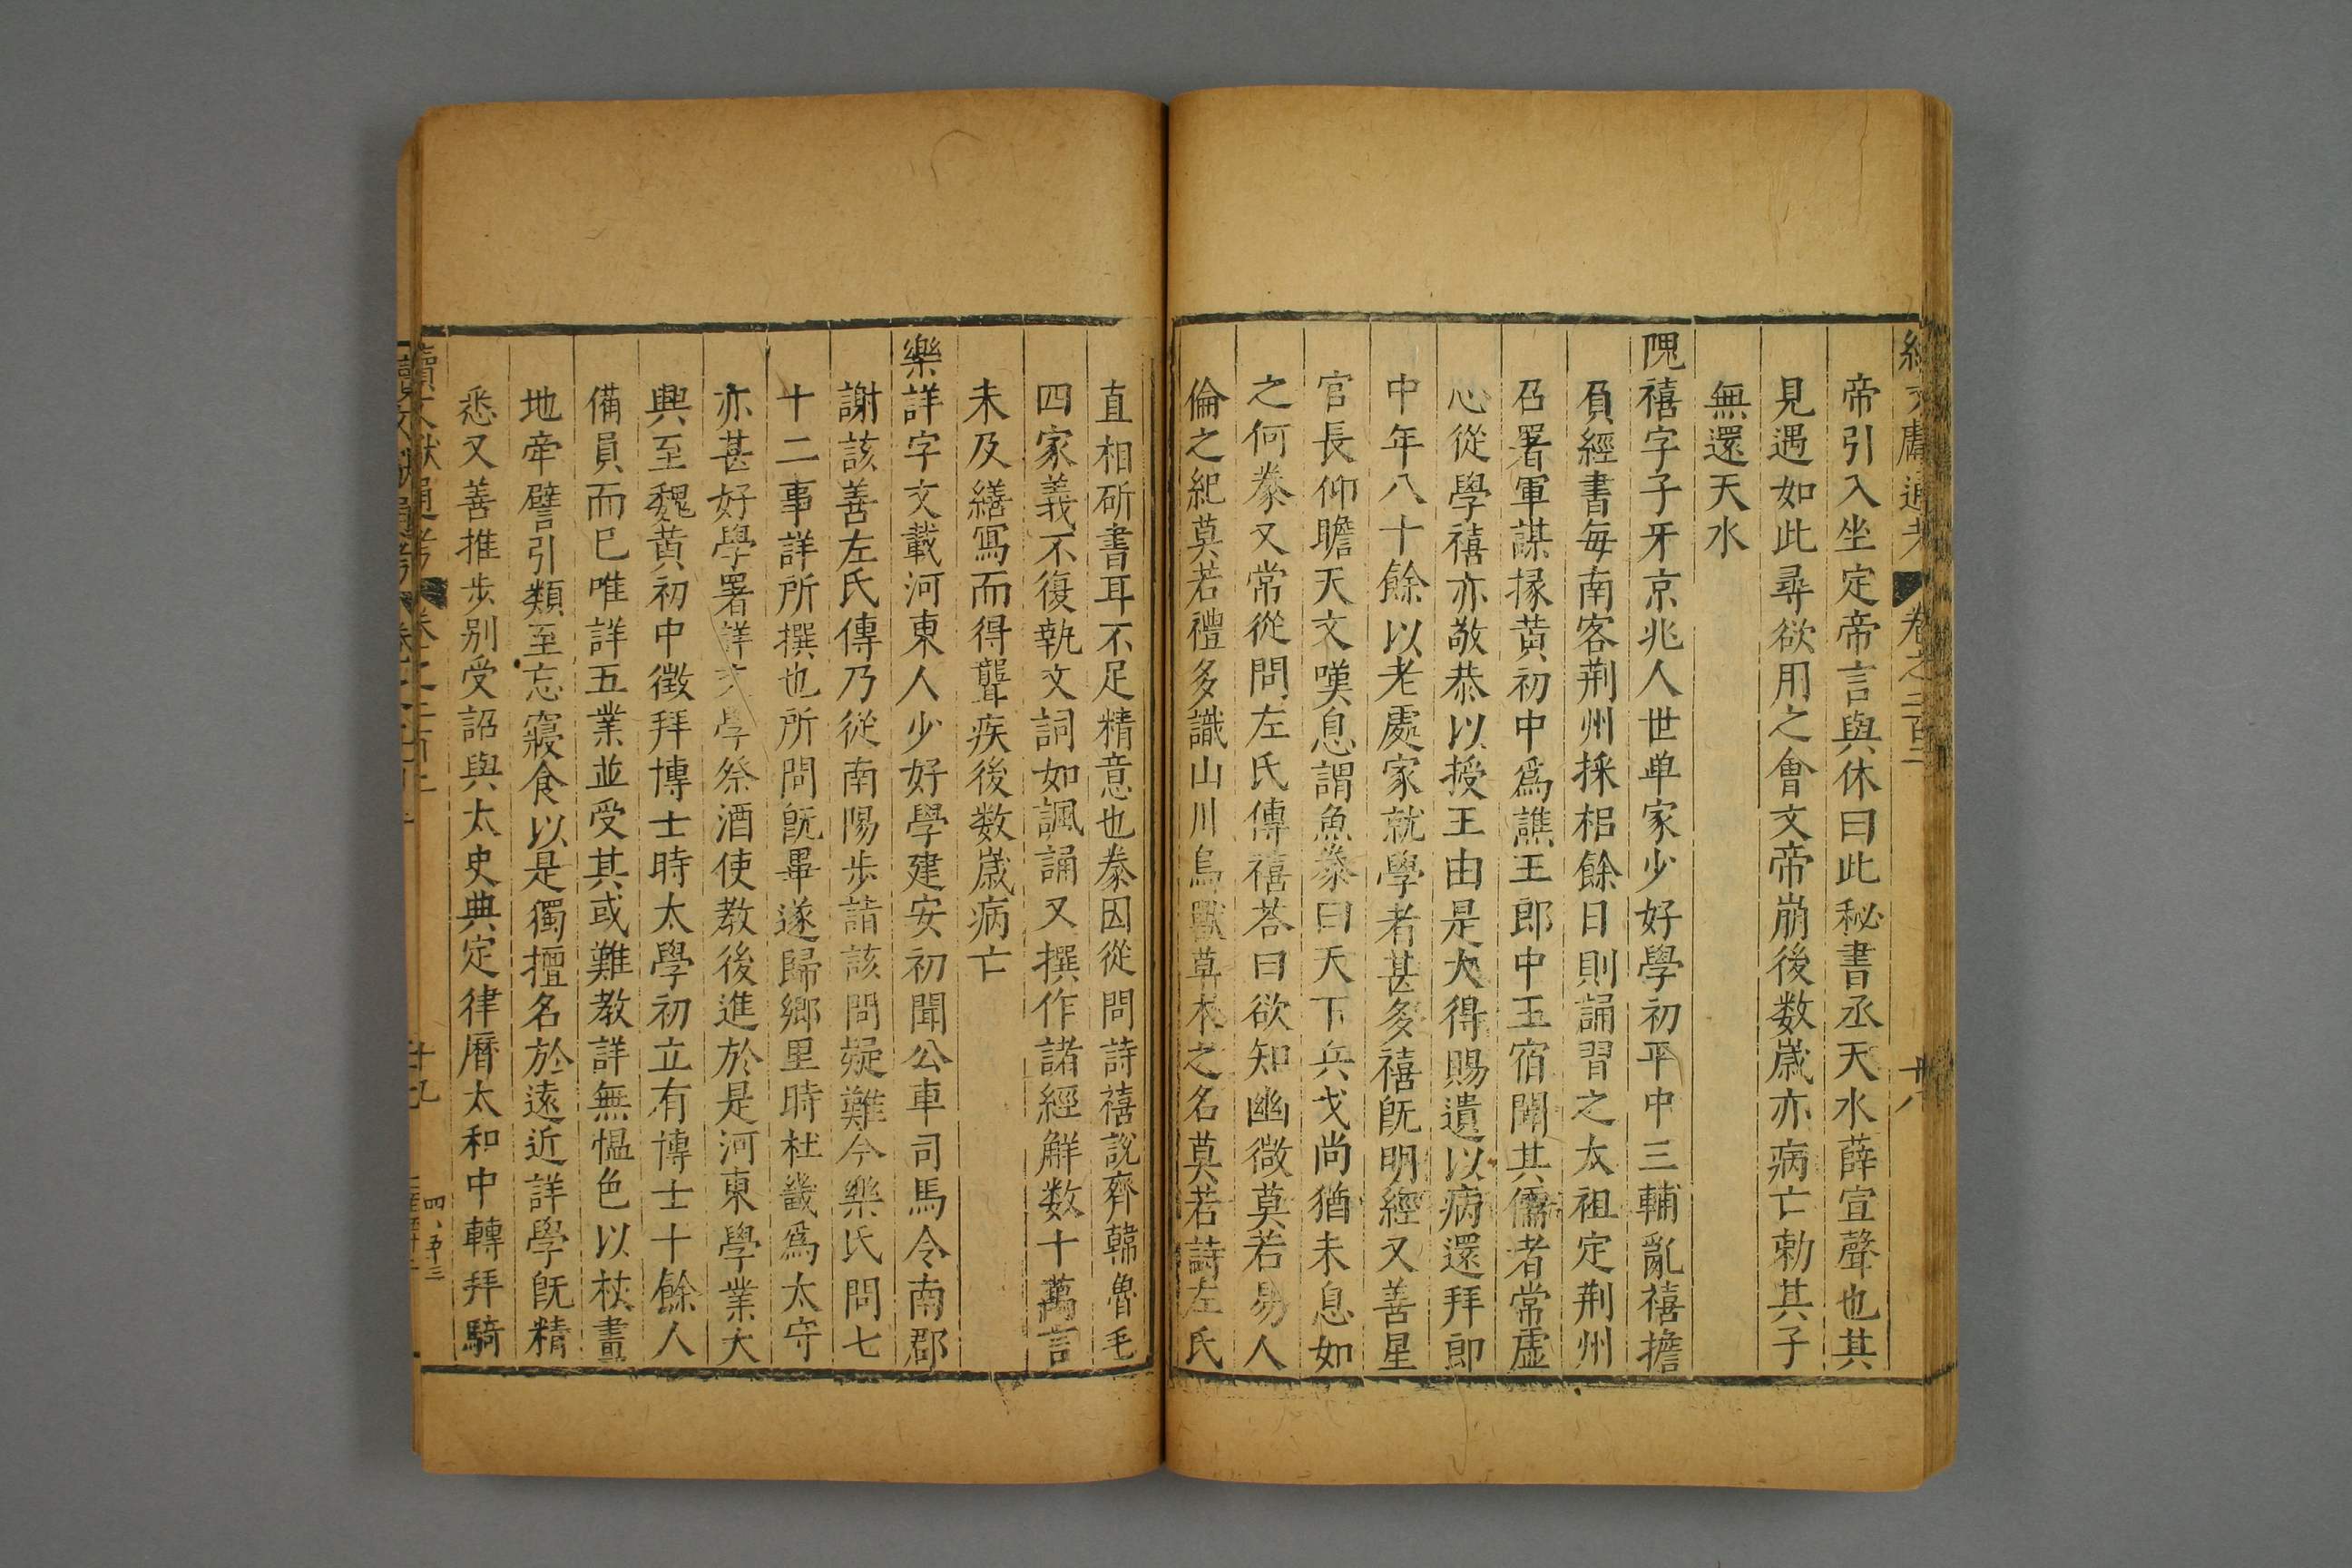 帝引入坐定帝言與休曰此秘書丞天水薛宣聲也其
見遇如此尋欲用之會文帝崩後数歲亦病亡勅其子
無還天水
隗禧字子牙京兆人世单家少好學初平中三輔亂禧擔
負經書每南客荆州採梠餘日則誦習之太祖定荆州
召署軍謀掾黄初中爲譙王郎中王宿聞其儒者常虚
心從學禧亦敬恭以授王由是大得賜遺以病還拜郎
中年八十餘以老處家就學者甚多禧旣明經又善星
官長仰瞻天文嘆息謂魚豢曰天下兵戈尚猶未息如
之何豢又常從問左氏傳禧荅曰欲知幽微莫若易人
倫之紀莫若禮多識山川鳥獸草木之名莫若詩左氏
直相斫書耳不足精意也豢因從問詩禧説齊韓魯毛
四家義不復執文詞如諷誦又撰作諸經解数十萬言
未及繕寫而得聾疾後数歲病亡
樂詳字文載河東人少好學建安初聞公車司馬令南郡
謝該善左氏傳乃從南陽步詣該問疑難今樂氏問七
十二事詳所撰也所問旣畢遂歸鄉里時杜畿爲太守
亦甚好學署詳文學祭酒使教後進於是河東學業大
興至魏黄初中徵拜博士時太學初立有博士十餘人
備員而已唯詳五業並受其或難教詳無愠色以杖畫
地牽譬引類至忘寢食以是獨擅名於遠近詳學旣精
悉又善推步别受詔與太史典定律曆太和中轉拜騎